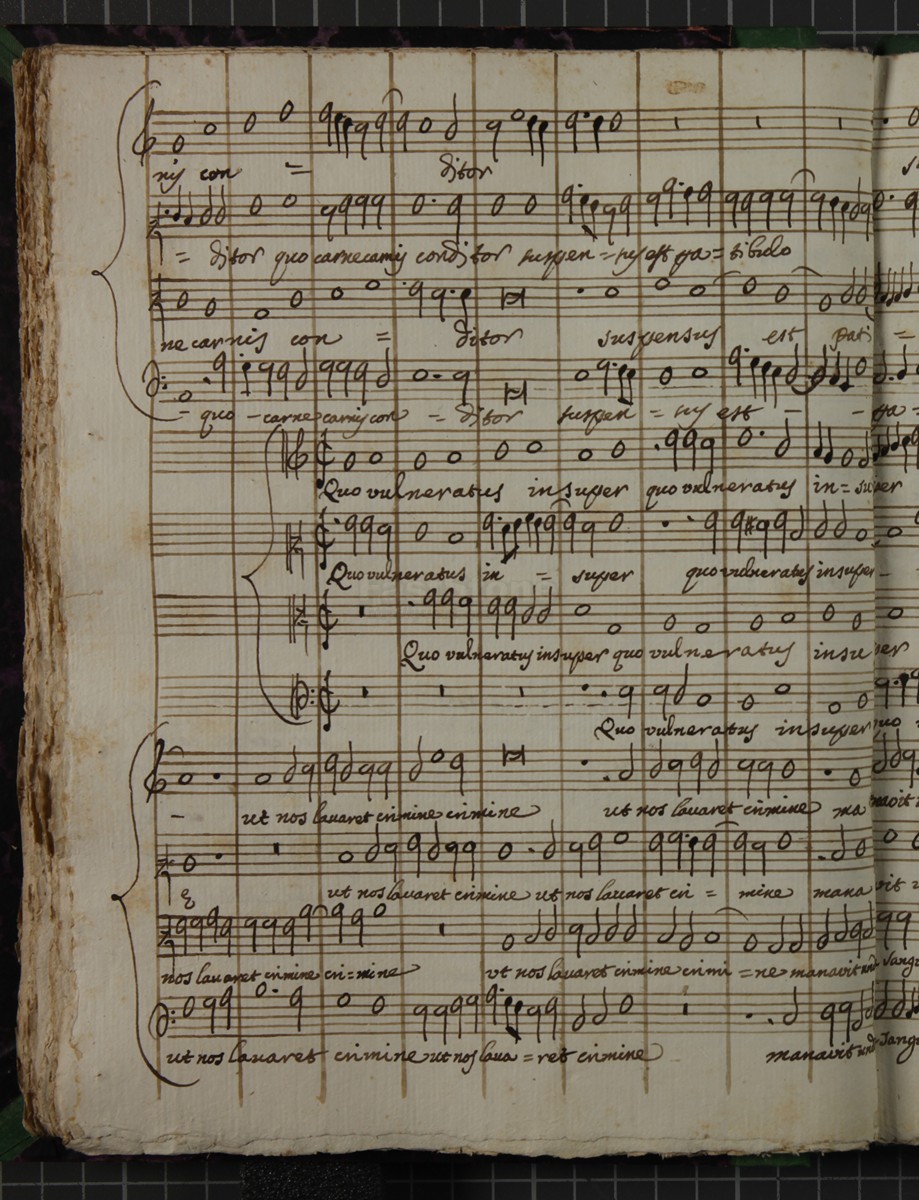 nis con = ditor
= ditor quo carne carnis conditor suspen = sus est pa = tibulo
ne carnis con = ditor suspensus est pati =
- quo - carne carnis con = ditor suspen = sus est - - pa =
Quo vulneratus insuper quo vulneratus in = super
Quo vulneratus in = super quo vulneratus insuper -
Quo vulneratus insuper quo vulneratus insuper
Quo vulneratus insuper quo
- ut nos lavaret crimine crimine ut nos lavaret crimine manavit
ut nos lavaret crimine ut nos lavaret cri = mine manavit
nos lavaret crimine cri = mine ut nos lavaret crimine crimi = ne manavit und sangu
ut nos lavaret crimine ut nos lava = ret crimine manavit und sangu